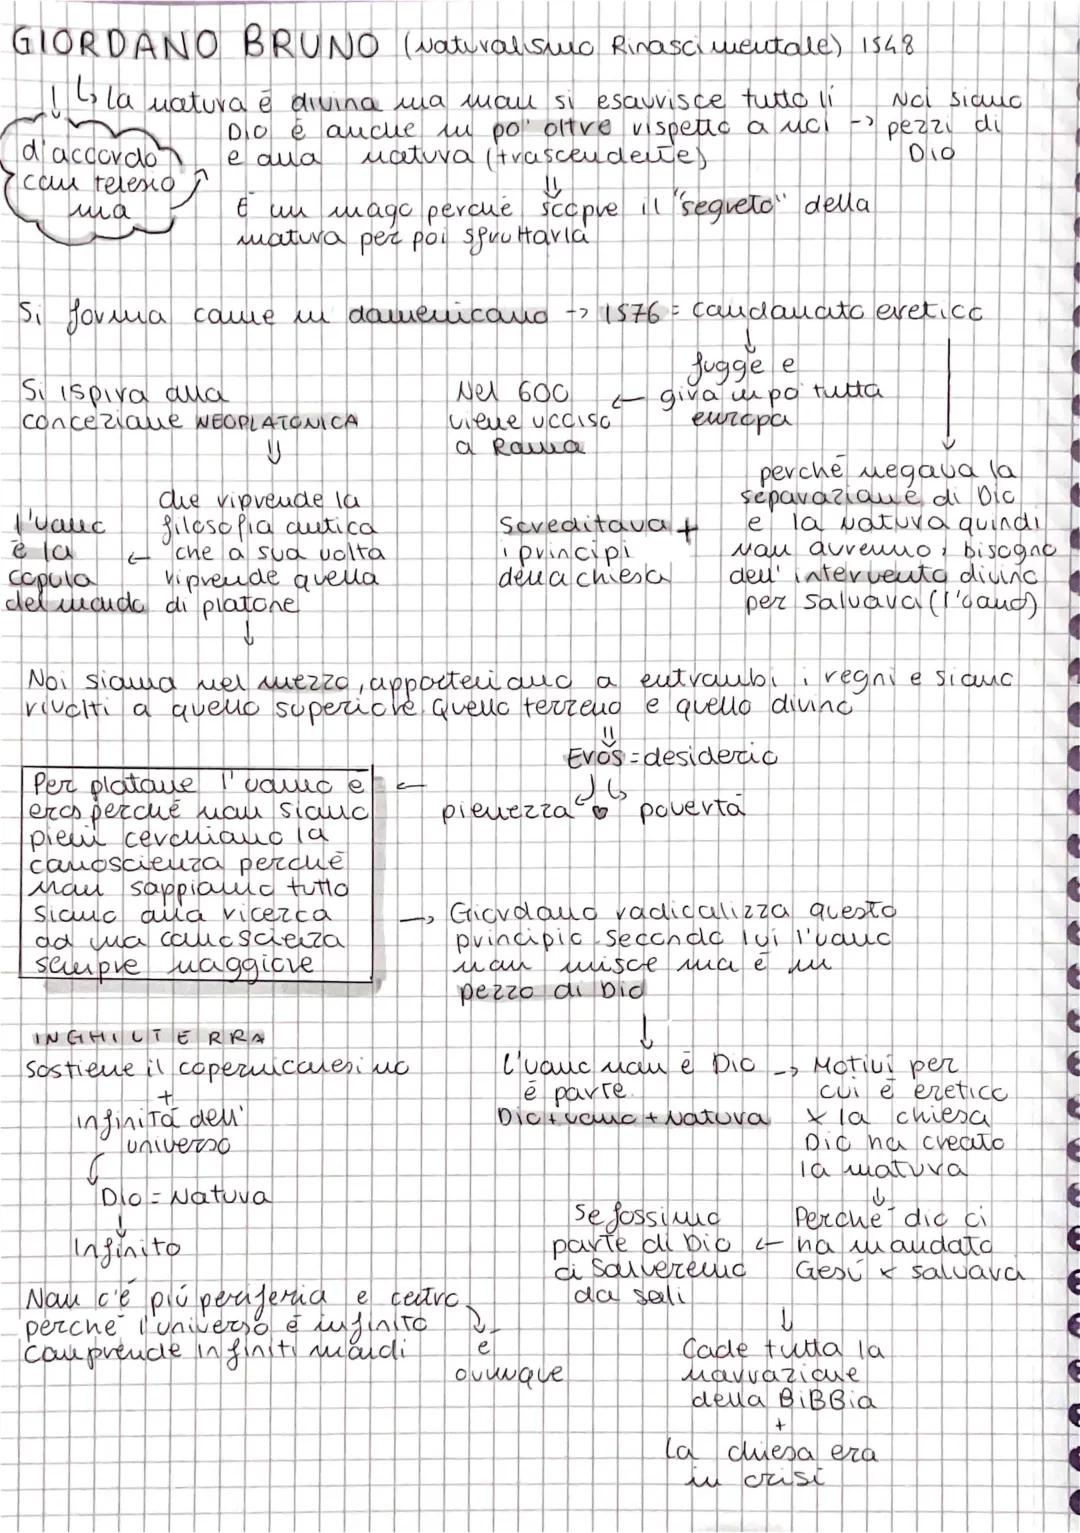 GIORDANO BRUNO (Naturalismo Rinascimentale) 1548
↓ ↳ la natura è divina ma non si esaurisce tutto lì
Dio è anche un po' oltre rispetto a noi -> Noi siamo pezzi di Dio
e alla natura (trascendente)
d'accordo
con telesio
ma
⇓
È un mago perché scopre il "segreto" della
natura per poi sfruttarla
Si forma come un domenicano -> 1576 = condannato eretico
↓
fugge e
gira un po tutta
europa
←
Nel 600
viene ucciso
a Roma
Si ispira alla
concezione NEOPLATONICA
⇓
che riprende la
filosofia antica
che a sua volta
riprende quella
di platone
←
l'uomo
è la
copula
del mondo
↓
perché negava la
separazione di Dio
e la natura quindi
non avremmo bisogno
dell'intervento divino
per salvarci (l'uomo)
+
Screditava
i principi
della chiesa
↓
Noi siamo nel mezzo, apparteniamo a entrambi i regni e siamo
rivolti a quello superiore. Quello terreno e quello divino
⇓
Eros = desiderio
pienezza ♥ povertà
←
Per platone l'uomo è
eros perché non siamo
pieni cerchiamo la
conoscienza perché
non sappiamo tutto
siamo alla ricerca
ad una conoscienza
sempre maggiore
-> Giordano radicalizza questo
principio. Secondo lui l'uomo
non unisce ma è un
pezzo di Dio
↓
L'uomo non è Dio
è parte.
Dio + uomo + Natura
-> Motivi per
cui è eretico
x la chiesa
Dio ha creato
la natura
↓
Perché dio ci
ha mandato
Gesù x salvarci
←
Se fossimo
parte di Dio
ci salveremo
da soli
↓
Cade tutta la
narrazione
della BiBBia
+
La chiesa era
in crisi
INGHILTERRA
Sostiene il copernicanesimo
+
infinità dell'
universo
↓
Dio = Natura
↓
Infinito
Non c'é più periferia e centro
perché l'universo è infinito
comprende infiniti mondi
↓
è
ovunque